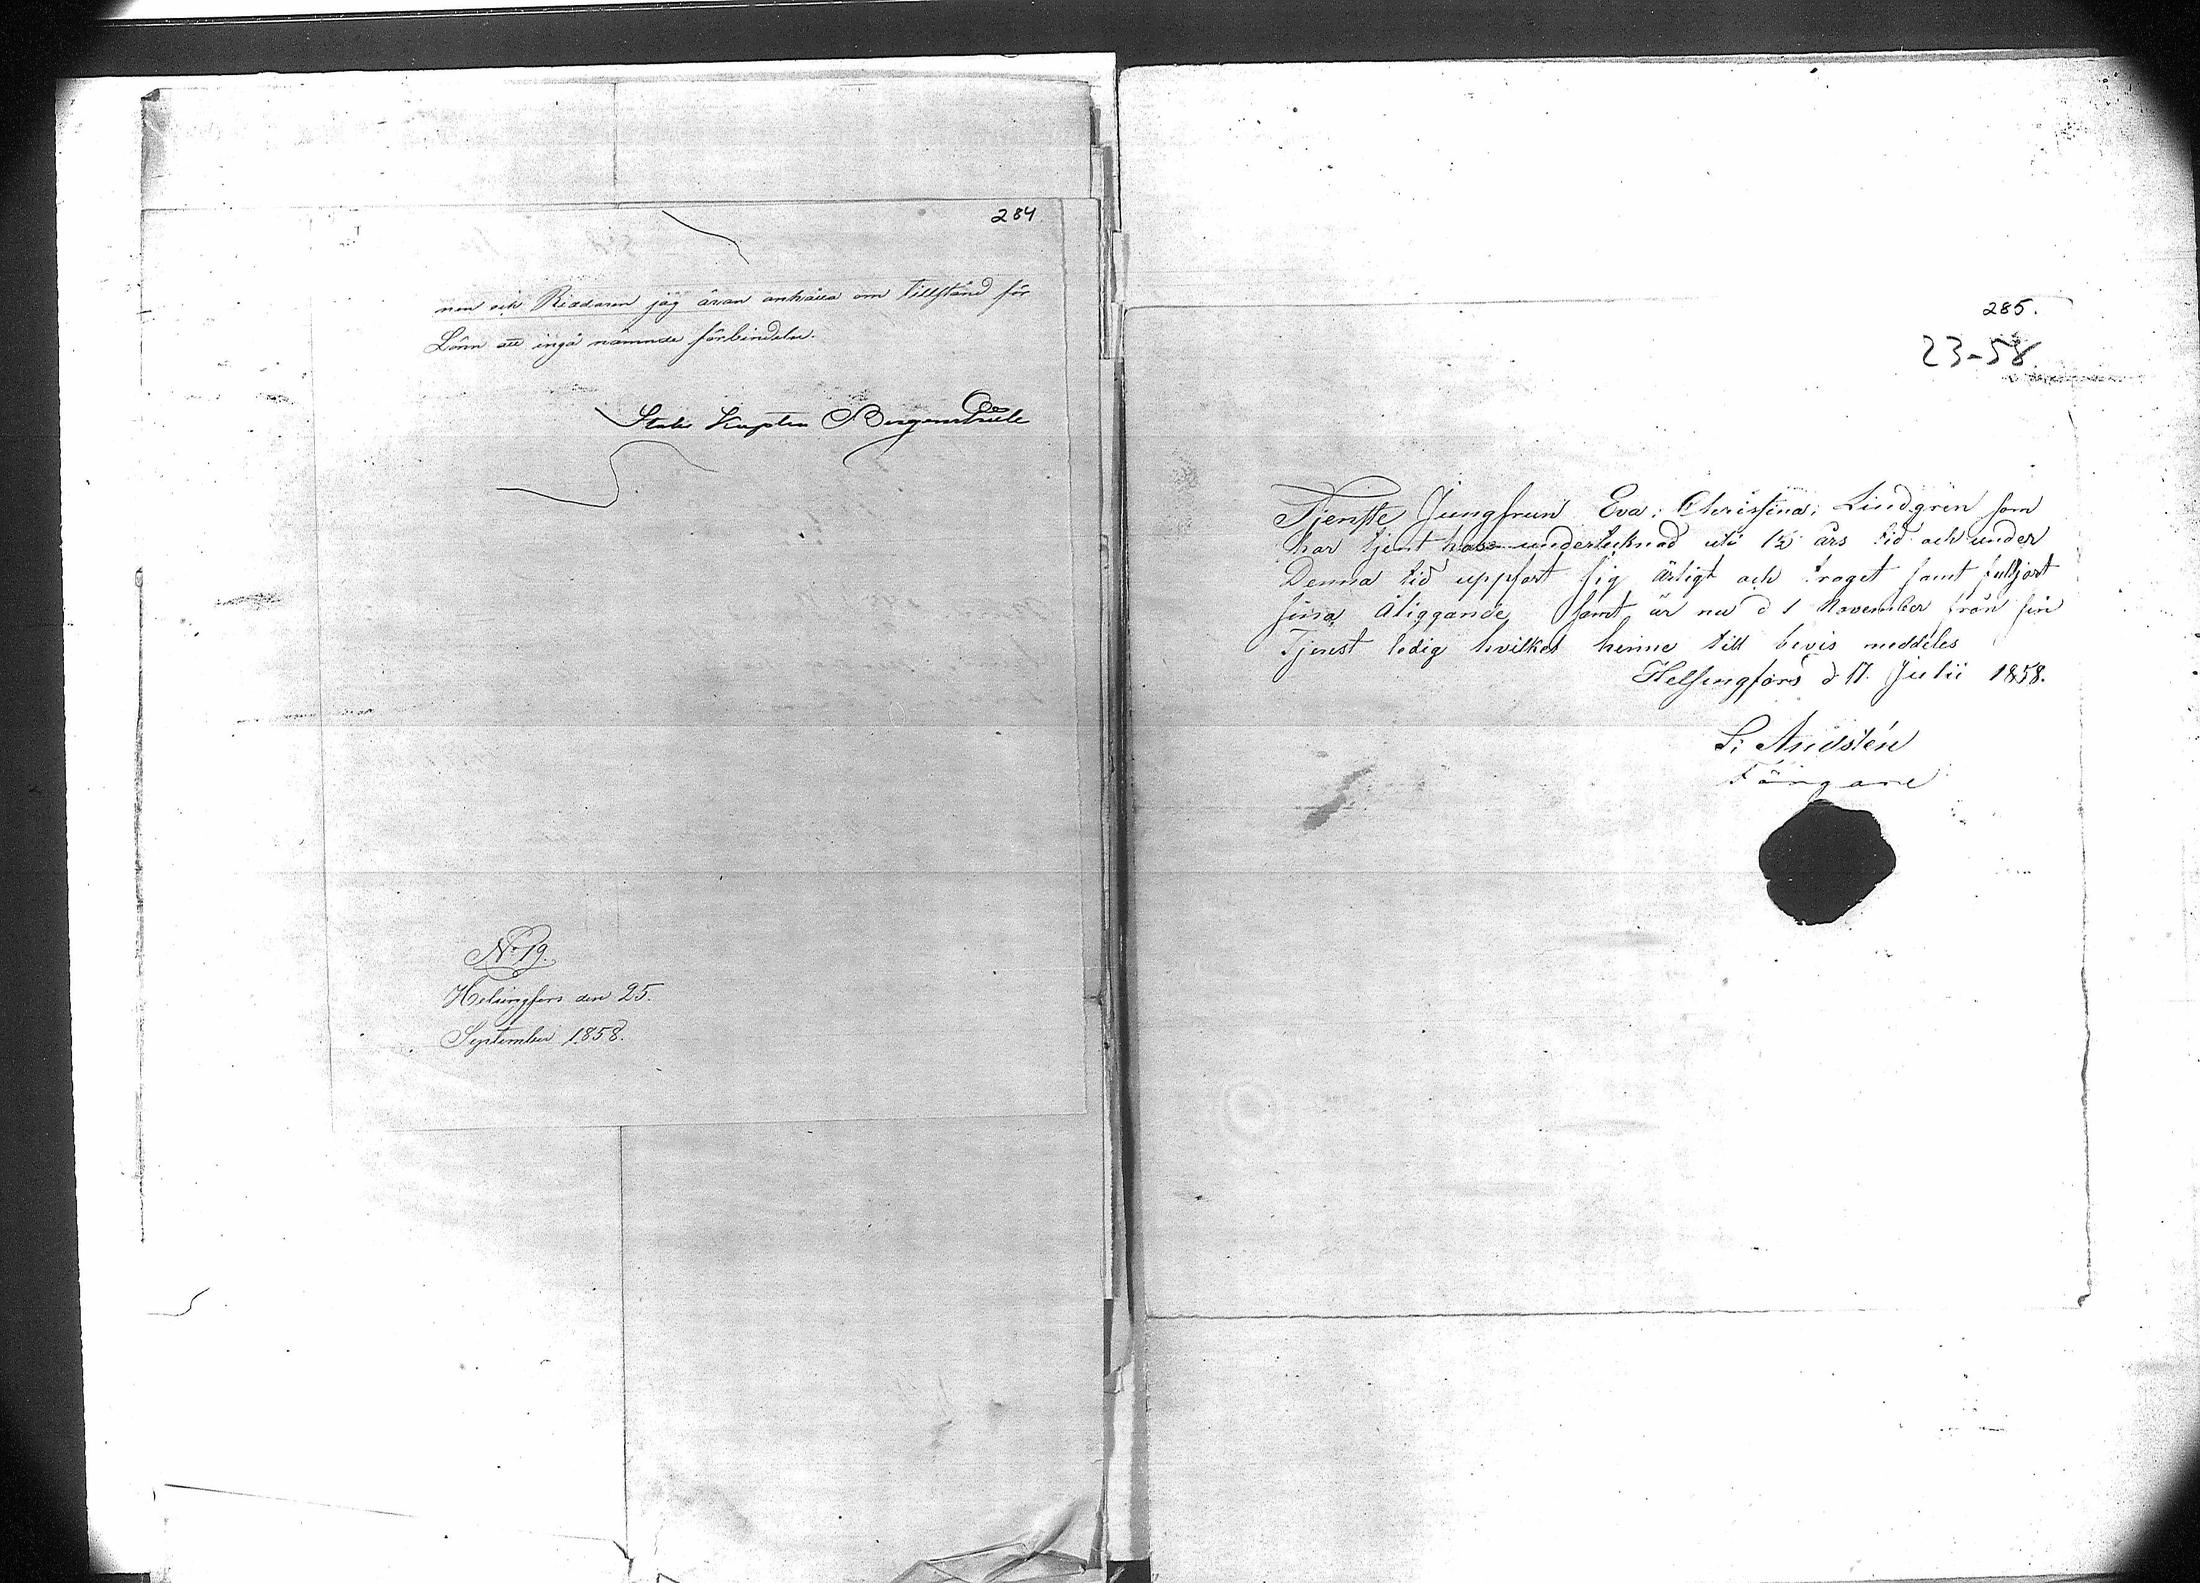 284
nen och Riddaren jag äran anhålla om tillstånd för
Lönn att ingå nämnde förbindelse.
Stabs Kapten Bergenstråle
No 19.
Helsingfors den 25.
September 1858.
285.
23-58
Tjenste Jungfrun Eva: Christina: Lindgren som
har tjent hos undertecknad uti 1½ års tid och under
Denna tid uppfört sig ärligt och troget samt fullgjort
sina åliggande samt är nu d 1 November från sin
Tjenst ledig hvilket henne till bevis meddeles
Helsingfors d 17. Julii 1858.
Andstén